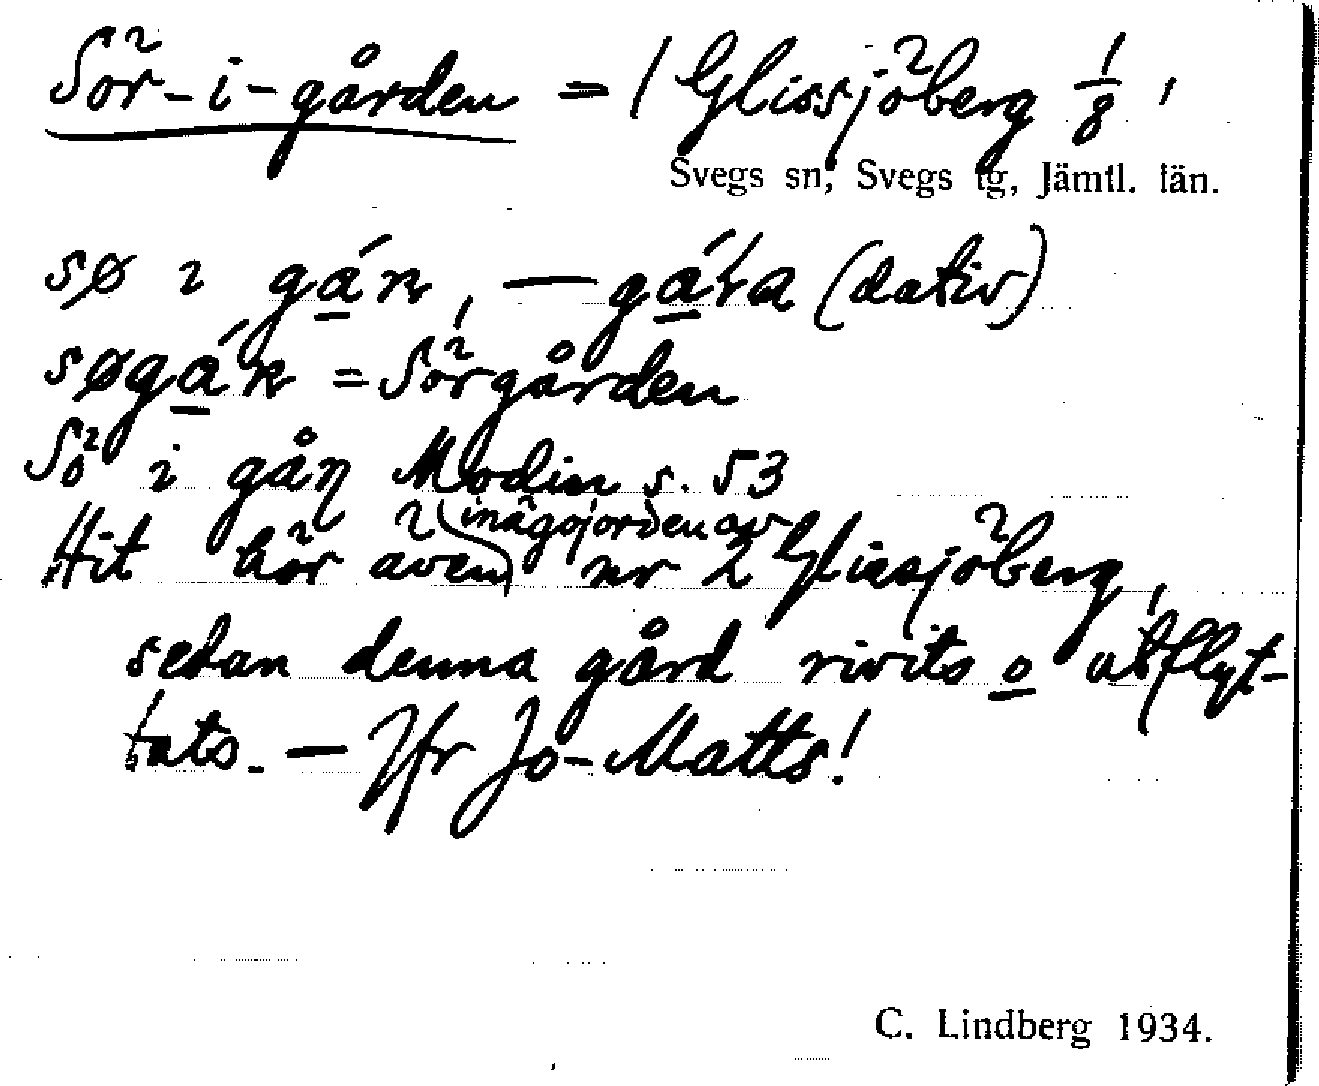 Sör-i-gården = / Glissjöberg 1/8,
Svegs sn, Svegs tg, Jämtl. län.
sø i gáɴ, — gáɾa (dativ)
søgáɴ = Sörgården
Sö i gåŋ Modin s. 53
Hit hör även (inägojorden av) nr 2 Glissjöberg,
sedan denna gård rivits o utflyt-
tats. — Jfr Jo-Matts!
C. Lindberg 1934.